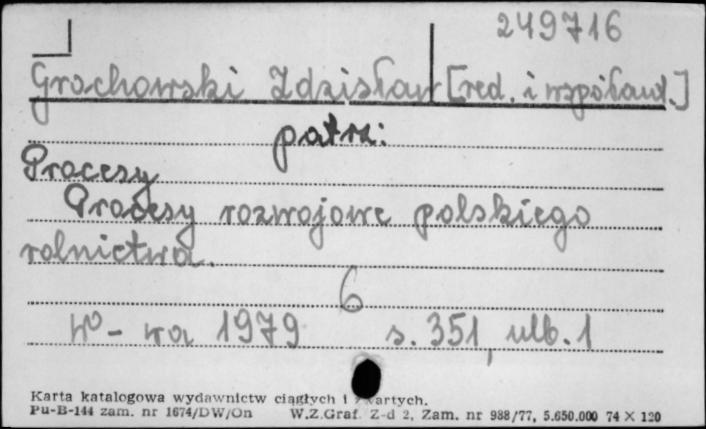 249716
Grochowski Zdzisław [red. i współaut.]
patrz:
Procesy
Procesy rozwojowe polskiego
rolnictwa.
6
W-wa 1979 s. 351, ulb. 1
Karta katalogowa wydawnictw ciągłych i zwartych.
Pu-B-144 zam. nr 1674/DW/On W.Z.Graf. Z-d 2, Zam. nr 988/77, 5.650.000 74 X 120